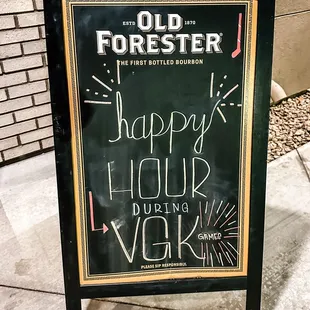 ESTD OLD 1870
FORESTER
THE FIRST BOTTLED BOURBON
happy
HOUR
DURING
VGK GAMES
PLEASE SIP RESPONSIBLY.